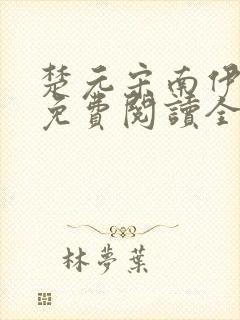 楚元宋南伊
免費閱讀全
林夢葉